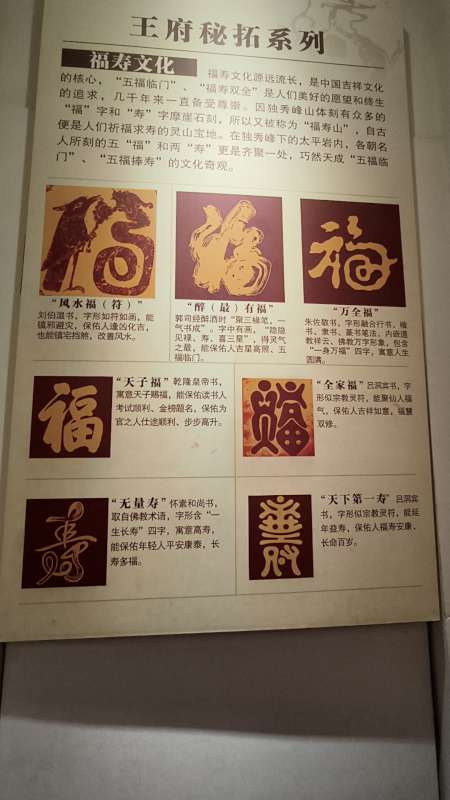 王府秘拓系列
福寿文化
福寿文化源远流长，是中国吉祥文化
的核心，“五福临门”、“福寿双全”是人们美好的愿望和终生
的追求，几千年来一直备受尊崇。因独秀峰山体刻有众多的
“福”字和“寿”字摩崖石刻，所以又被称为“福寿山”，自古
便是人们祈福求寿的灵山宝地。在独秀峰下的太平岩内，各朝名
人所刻的五“福”和两“寿”更是齐聚一处，巧然天成“五福临
门”、“五福捧寿”的文化奇观。
“风水福（符）”
刘伯温书，字形如符如画，能
镇邪避灾，保佑人逢凶化吉，
也能镇宅挡煞，改善风水。
“醉（最）有福”
郭司经醉酒时“聚三椽笔，一
气书成”。字中有画，“隐隐
见禄、寿、喜三星”，得灵气
之最，能保佑人吉星高照、五
福临门。
“万全福”
朱佐敬书，字形融合行书、楷
书、隶书、篆书笔法，内嵌道
教祥云、佛教万字形象，包含
“一身万福”四字，寓意人生
圆满。
福
“天子福”乾隆皇帝书，
寓意天子赐福，能保佑读书人
考试顺利、金榜题名，保佑为
官之人仕途顺利、步步高升。
“全家福”吕洞宾书，字
形似宗教灵符，能聚仙人福
气，保佑人吉祥如意，福慧
双修。
“无量寿”怀素和尚书，
取自佛教术语，字形含“一
生长寿”四字，寓意高寿，
能保佑年轻人平安康泰，长
寿多福。
“天下第一寿”吕洞宾
书，字形似宗教灵符，能延
年益寿，保佑人福寿安康、
长命百岁。